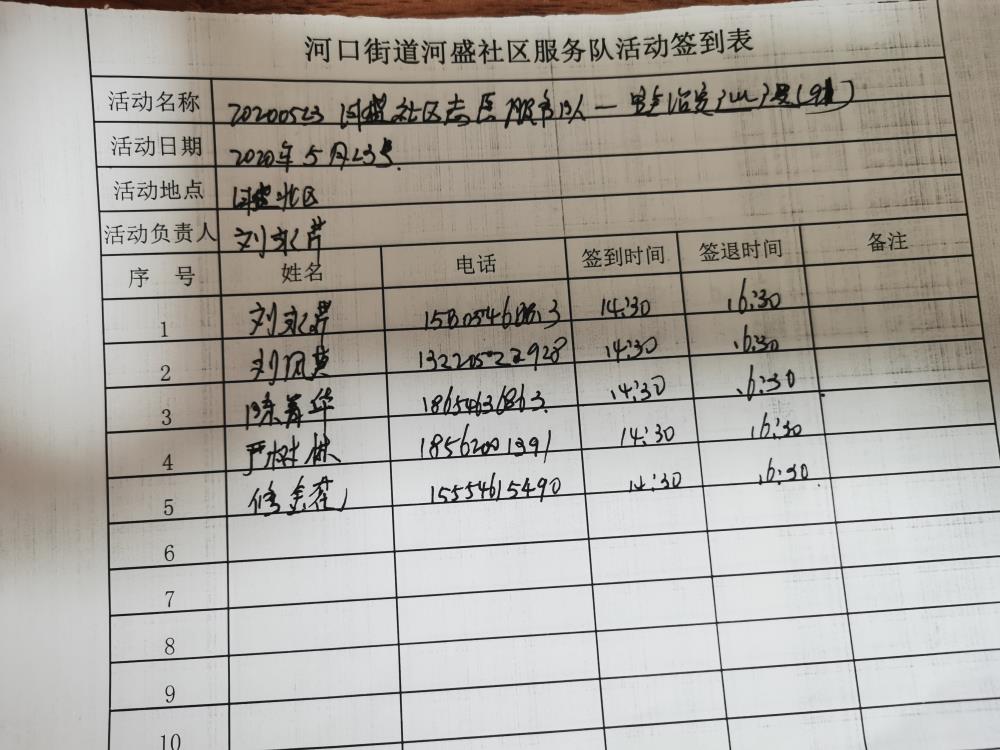 河口街道河盛社区服务队活动签到表
活动名称 20200523 河盛社区志愿服务队一
活动日期 2020年5月23号
活动地点 河盛社区
活动负责人 刘永芹
序 号 姓名 电话 签到时间 签退时间 备注
1 刘永芹 14:30 16:30
2 刘凤英 13220522928 14:30 16:30
3 华 18654636863 14:30 16:30
4 严树林 18562001391 14:30 16:30
5 修 15554615490 14:30 16:30
6
7
8
9
10